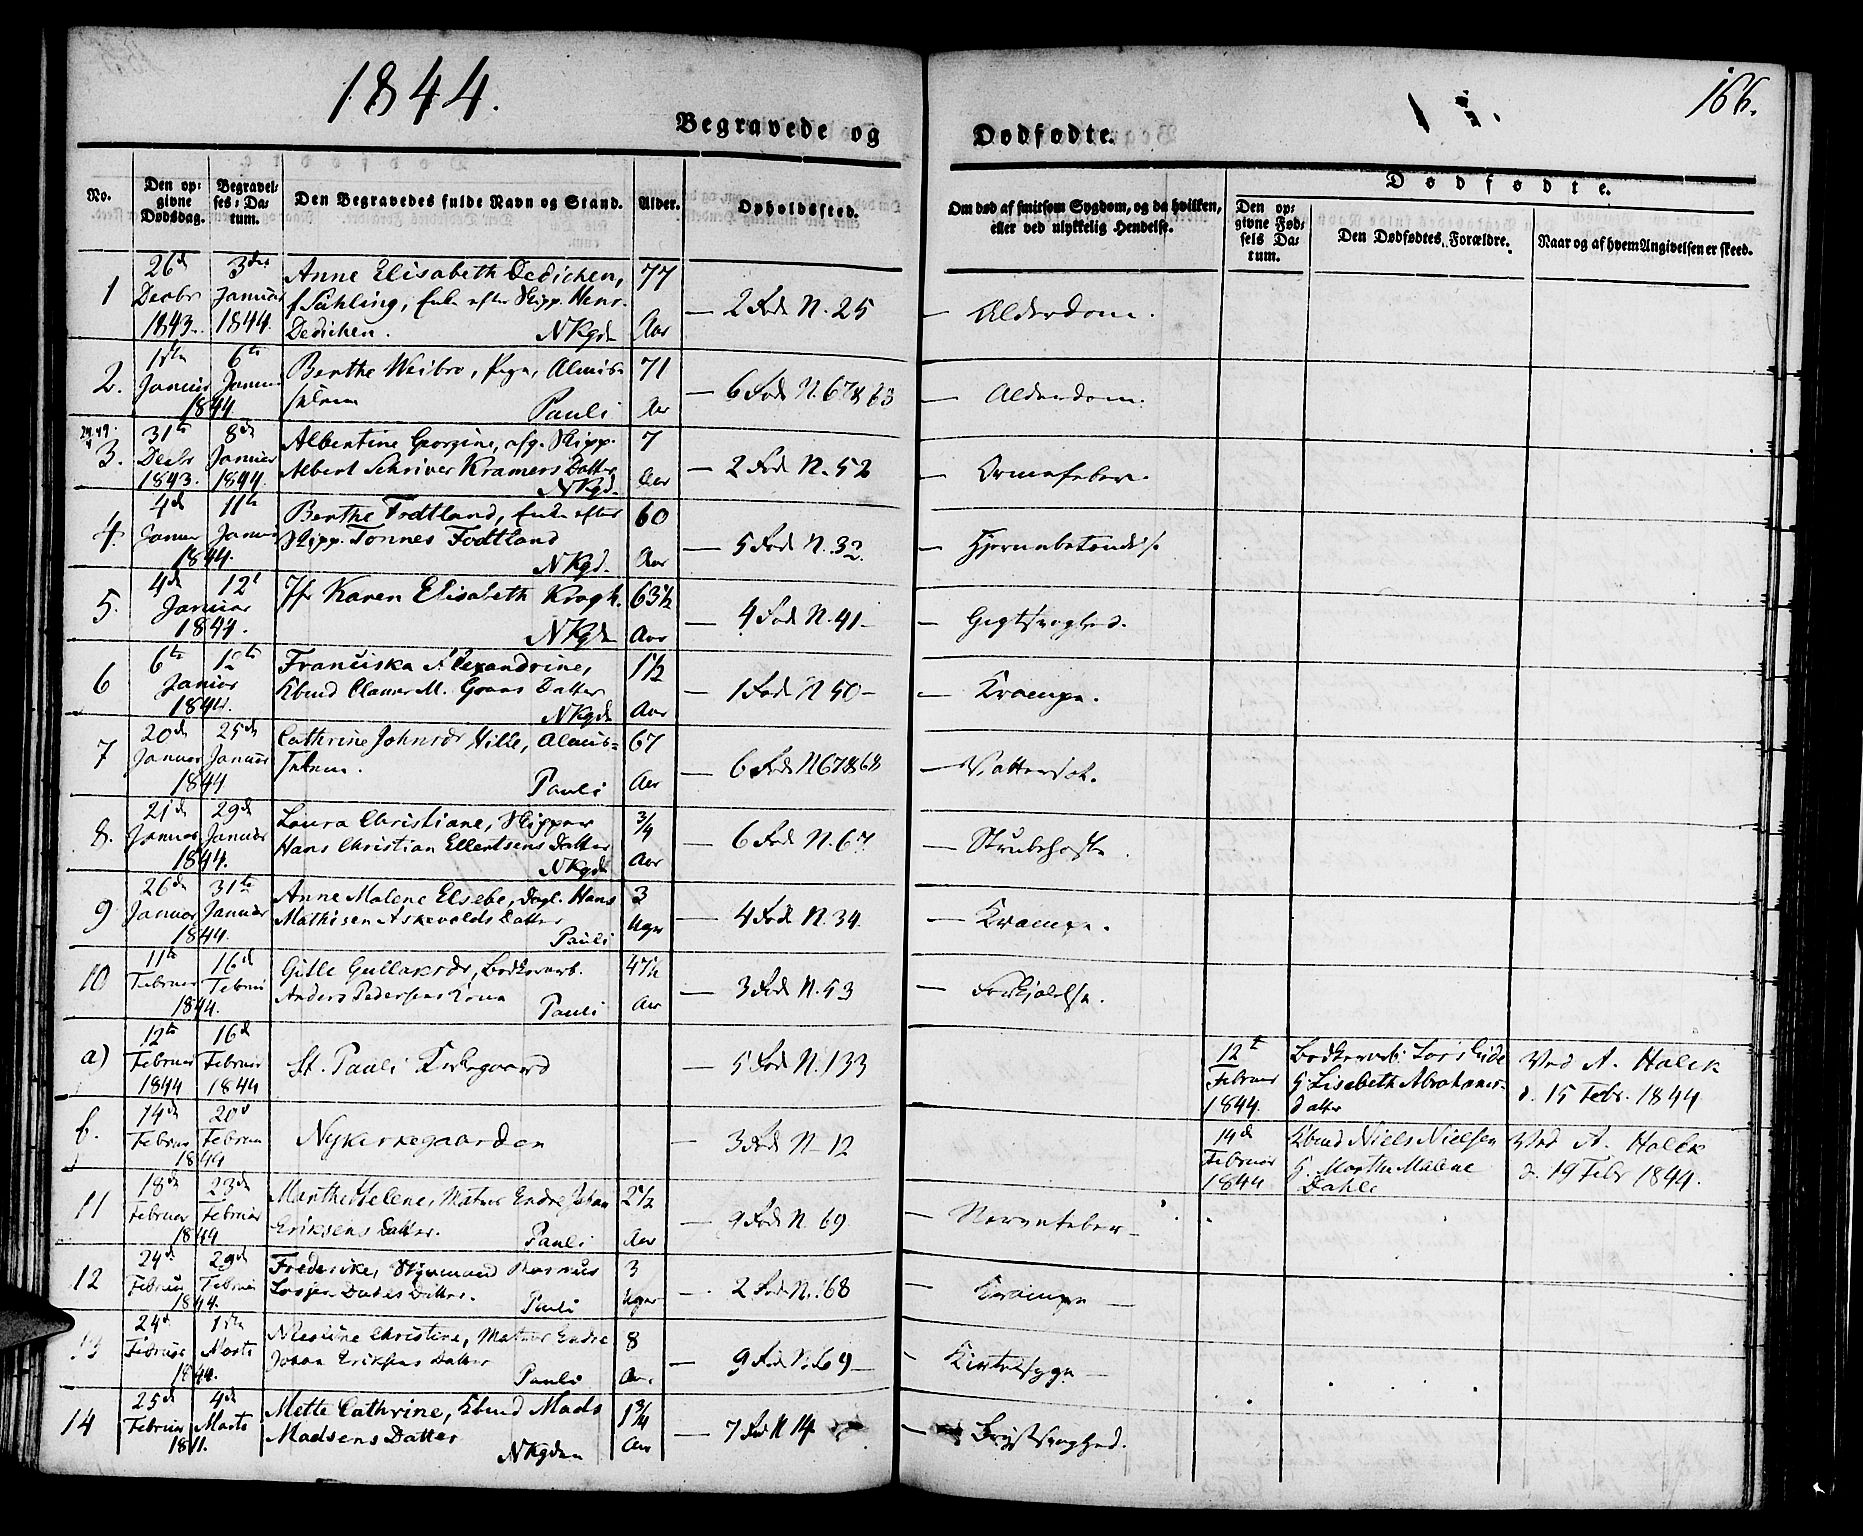 1844.
166.
Begravede og
Dødfødte.
No.
Den opgivne Dødsdag.
Begravelses-Datum.
Den Begravedes fulde Navn og Stand.
Alder.
Opholdssted.
Om død af smitsom Sygdom, og da hvilken, eller ved ulykkelig Hendelse.
Dødfødte.
Den opgivne Fødsels Datum.
Den Dødfødtes Forældre.
Naar og af hvem Angivelsen er skeed.
1 26d Decbr 1843. 3die Januar 1844. Anne Elisabeth Dedichen,
f. Sühling, Enke efter Skipp. Henr.
Dedichen. NKgd 77 Aar – 2 Rode N. 25 – Alderdom.
2. 1ste Januar 6te Januar 1844 Berthe Weibro, Pige, Almis-
Pauli 71 Aar – 6 Rode N. 67 & 63 – Alderdom.
3. 31te Decbr 1843. 8de Januar 1844. Albertine Georgine, afg. Skipp.
Albert Schriver Kramers Datter
NKgd. 7 Aar – 2 Rode N. 52 – Ormefeber.
4. 4de Januar 11te Januar 1844. Berthe Fodtland, Enke efter
Skipp. Tonnes Fodtland
NKgd. 60 Aar – 5 Rode N. 32 –
5. 4de 12t Januar 1844. Jfr Karen Elisabeth Krogh.
NKgd 63½ Aar – 4 Rode N. 41 – Gigtsvaghed.
6 6te 12te Januar 1844. Franciska Alexandrine,
Kbmd Claner M. Graas Datter
NKgd 1½ Aar – 1 Rode N 50 – Krampe.
7 20de Januar 25de Januar 1844 Cathrine Johnsdr Hille, Almis-
Pauli 67 Aar – 6 Rode N 67 & 68 – Vattersot.
8. 21de Januar 29de Januar 1844. Laura Christiane, Skipper
Hans Christian Ellertsens Datter
NKgd ¾ Aar – 6 Rode N. 67 – Strubehoste.
9 26de Januar 31te Januar 1844. Anne Malene Elsebe, Dagl. Hans
Mathisen Askevolds Datter
Pauli 3 Uger – 4 Rode N. 34. – Krampe.
10 11te Februar 16de Februar 1844. Gitle Gullaksdr, Bødkersv.
Anders Pedersens Kone
Pauli 47½ Aar – 3 Rode N. 53 – Forkjølelse.
a) 12te Februar 1844 16d Februar 1844 St. Pauli Kirkegaard – 5 Rode N. 133 12t Februar 1844. Bødkersv.
G. Lisebeth Abrahams-
datter Ved A. Halck
d. 15 Febr. 1844
b. 14de Februar 20d Februar 1844 Nykirkegaarden – 3 Rode N – 12 14d Februar 1844 Kbmd Niels Nielsen
G. Marthe Malene
Dahle Ved A. Halck
d. 19 Febr 1844.
11 18de Februar 23de Februar 1844 Marthe Helene, Matros Endre Johan
Eriksens Datter. Pauli 2½ Aar – 9 Rode N. 69 – Nervefeber –
12 24de Februar 29de Februar 1844. Frederike, Styrmand Rasmus
Datter. Pauli 3 Uger – 2 Rode N. 68 – Krampe –
13 24d Februar 1ste Marts 1844. Christine, Matros Endre
Johan Eriksens Datter
Pauli 8 Aar. – 9 Rode N. 69 – Kirtelsyge –
14 25de Februar 4de Marts Mette Cathrine, Kbmd Mads
Madsens Datter
NKgden 1¾ Aar – 7 Rod N 14 – Brystsvaghed.